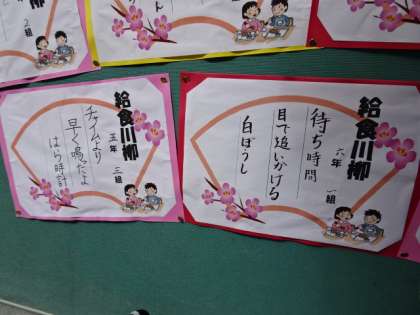 給食川柳
六年 一組
待ち時間
目で追いかける
白ぼうし
給食川柳
五年 三組
チャイムより
早く鳴るだよ
はら時計
柳
ん
２組